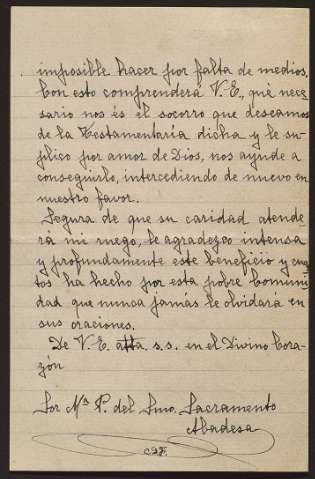 imposible hacer por falta de medios.
Con esto comprenderá V.E., qué nece
sario nos és el socorro que deseamos
de la Testamentaría dicha y le su-
plico por amor de Dios, nos ayude a
conseguirlo, intercediendo de nuevo en
nuestro favor.
Segura de que su caridad atende-
rá mi ruego, le agradezco intensa
y profundamente este beneficio y cuan
tos ha hecho por esta pobre Comuni
dad que nunca jamás le olvidará en
sus oraciones.
De V.E. atta. s.s. en el Divino Cora-
zón
Sor Mª P. del Smo. Sacramento
Abadesa